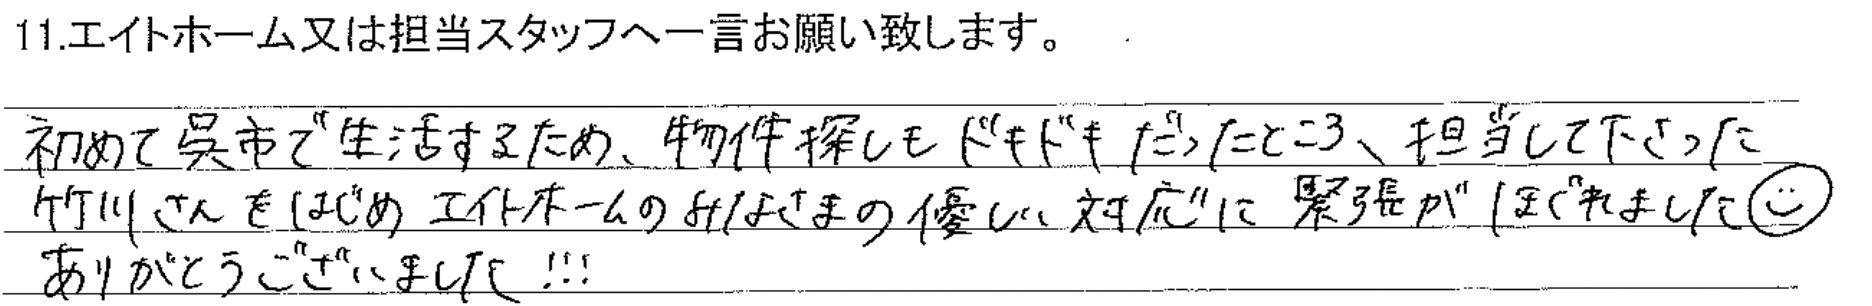 11.エイトホーム又は担当スタッフへ一言お願い致します。
初めて呉市で生活するため、物件探しもドキドキだったところ、担当して下さった
竹川さんをはじめエイトホームのみなさまの優しい対応に緊張がほぐれました☺
ありがとうございました!!!